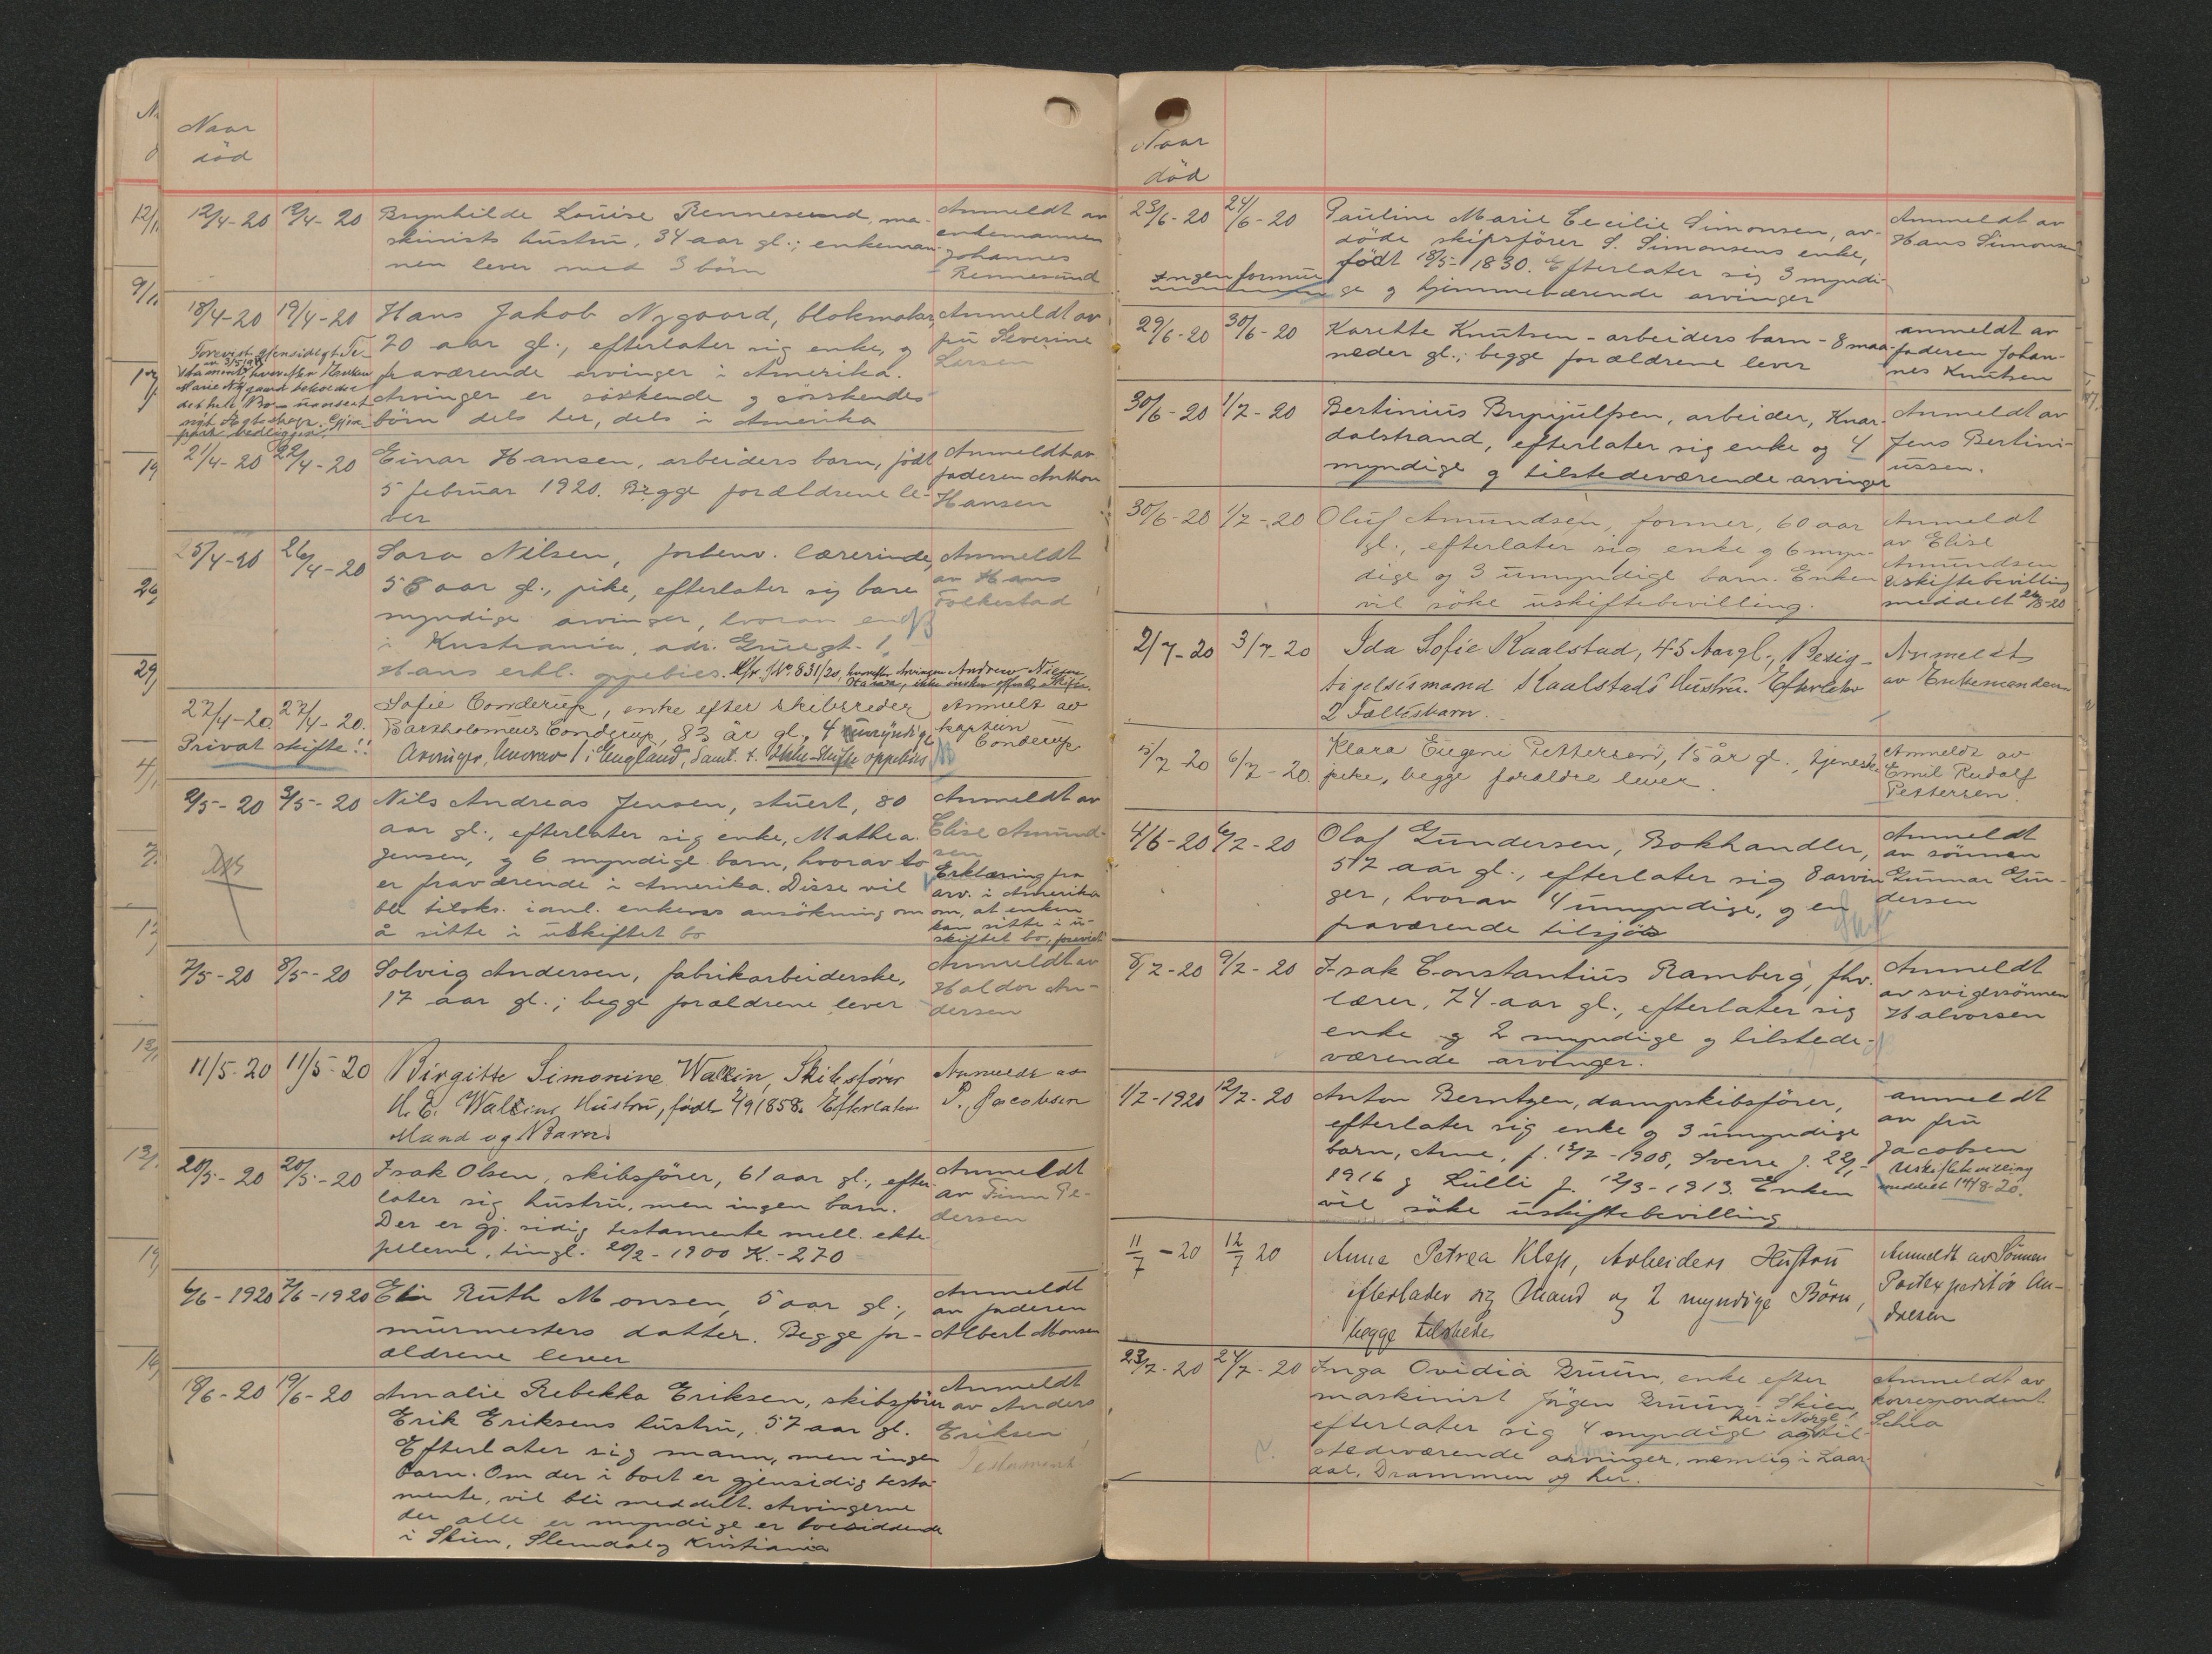 Naar
død
12/4-20 12/4-20 Brynhilde Louise Rennesund, ma-
skinists hustru, 34 aar gl.; enkeman-
nen lever med 3 börn
Anmeldt av
enkemannen
Johannes
Rennesund
18/4-20 19/4-20 Hans Jakob Nygaard, blokmaker,
70 aar gl., efterlater sig enke, og
fraværende arvinger i Amerika.
Arvinger er söskende og söskendes
börn dels her, dels i Amerika
Anmeldt av
fru Severine
Larsen
Forevist gjensidigt Te-
hvorefter Enken
Marie Nygaard beholder
det hele Bo
21/4-20 22/4-20 Einar Hansen, arbeiders barn, født
5 februar 1920. Begge forældrene le-
ver
Anmeldt av
faderen Anthon
Hansen
25/4-20 26/4-20 Sara Nilsen, forhenv. lærerinde,
58 aar gl., pike, efterlater sig bare
myndige arvinger, hvorav en
i Kristiania, adr. Gruegt. 1.
Hans erkl. oppebies. Jfr. J.No. 831/20, hvorefter Arvingen Andrew Nilsen,
Ottawa, ikke ønsker offentlig Skifte.
Anmeldt
av Hans
Folkestad
27/4-20. 27/4-20. Sofie Conderup, enke efter skibsreder
Bartholomeus Conderup, 83 år gl., 4 myndige
Arvinger, hvorav 1 i England, Samt. t. Uskifte oppebies
Privat skifte!!
Anmeldt av
kaptein
Conderup
2/5-20 3/5-20 Nils Andreas Jensen, stuert, 80
aar gl., efterlater sig enke, Mathea
Jensen, og 6 myndige barn, hvorav to
er fraværende i Amerika. Disse vil
bli tilskr. i anl. enkens ansökning om
å sitte i uskiftet bo
Anmeldt av
Elise Amund-
sen
Erklæring fra
arv. i Amerika
om, at enken
kan sitte i u-
skiftet bo, forevist
7/5-20 8/5-20 Solveig Andersen, fabrikarbeiderske,
17 aar gl.; begge forældrene lever
Anmeldt av
Haldor An-
dersen
11/5-20 11/5-20 Birgitte Simonine Wallin, Skibsfører
H. E. Wallins Hustru, født 4/9 1858. Efterlater
Mand og Barn.
Anmeldt av
P. Jacobsen
20/5-20 20/5-20 Isak Olsen, skibsförer, 61 aar gl., efter-
later sig hustru, men ingen barn.
Der er gj. sidig testamente mell. ekte-
fellerne, tingl. 20/2-1900 K.-270
Anmeldt
av Finn Pe-
dersen
6/6-1920 7/6-1920 Ruth Monsen, 5 aar gl.,
murmesters datter. Begge for-
ældrene lever
Anmeldt
av faderen
Albert Monsen
18/6-20 19/6-20 Amalie Rebekka Eriksen, skibsförer
Erik Eriksens hustru, 57 aar gl.
Efterlater sig mann, men ingen
barn. Om der i boet er gjensidig testa-
mente, vil bli meddelt. Arvingerne
der alle er myndige er boesiddende
i Skien, Slemdal og Kristiania
Anmeldt
av Anders
Eriksen
Testament
Naar
död
23/6-20 24/6-20 Pauline Marie Cecilie Simonsen, av-
döde skipsförer S. Simonsens enke,
födt 18/5-1830. Efterlater sig 3 myndi-
ge og hjemmeværende arvinger
Ingen formue
Anmeldt av
Hans Simonsen
29/6-20 30/6-20 Karette Knutsen - arbeiders barn - 8 maa-
neder gl.; begge forældrene lever
anmeldt av
faderen Johan-
nes Knutsen
30/6-20 1/7-20 Bertinius Brynjulfsen, arbeider, Knar-
dalstrand, efterlater sig enke og 4
myndige og tilstedeværende arvinger
Anmeldt av
Jens Bertini-
ussen.
30/6-20 1/7-20 Oluf Amundsen, former, 60 aar
gl., efterlater sig enke og 6 myn-
dige og 3 umyndige barn. Enken
vil söke uskiftebevilling.
Anmeldt
av Elise
Amundsen
Uskiftebevilling
meddelt 26/8-20
2/7-20 3/7-20 Ida Sofie Kaalstad, 45 Aar gl., Besig-
tigelsesmand Kaalstads Hustru. Efterlater
2 Fællesbarn.
Anmeldt
av Enkemanden
5/7-20 6/7-20. Klara Eugenie Pettersen, 15 år gl., tjeneste-
pike, begge forældre lever.
Anmeldt av
Emil Rudolf
Pettersen.
4/6-20 6/7-20 Olaf Gundersen, Bokhandler,
57 aar gl., efterlater sig 8 arvin-
ger, hvorav 4 umyndige, og en
fraværende tilsjös
Anmeldt
av sönnen
Gunnar Gun-
dersen
8/7-20 9/7-20 Isak Constantius Ramberg, fhv.
lærer, 74 aar gl., efterlater sig
enke og 2 myndige og tilstede-
værende arvinger.
Anmeldt
av svigersönnen
Halvorsen
1/7-1920 12/7-20 Anton Berntzen, dampskibsförer,
efterlater sig enke og 3 umyndige
barn, Arne, f. 13/7-1908, Sverre f. 22/1-
1916 og Lulli f. 12/3-1913. Enken
vil söke uskiftebevilling
anmeldt
av fru
Jacobsen
Uskiftebevilling
meddelt 14/8-20.
11/7-20 12/7 20 Anne Petrea Klep, Arbeiders Hustru
efterlader sig Mand og 2 myndige Börn,
begge tilstede
Anmeldt av Sönnen
Postexpeditör An-
dresen
23/7-20 24/7-20 Inga Ovidia Bruun, enke efter
maskinist Jörgen Bruun, Skien,
efterlater sig 4 myndige her i Norge og til-
stedeværende arvinger, nemlig i Laar-
dal, Drammen og her.
Anmeldt av
korrespondent
Schea